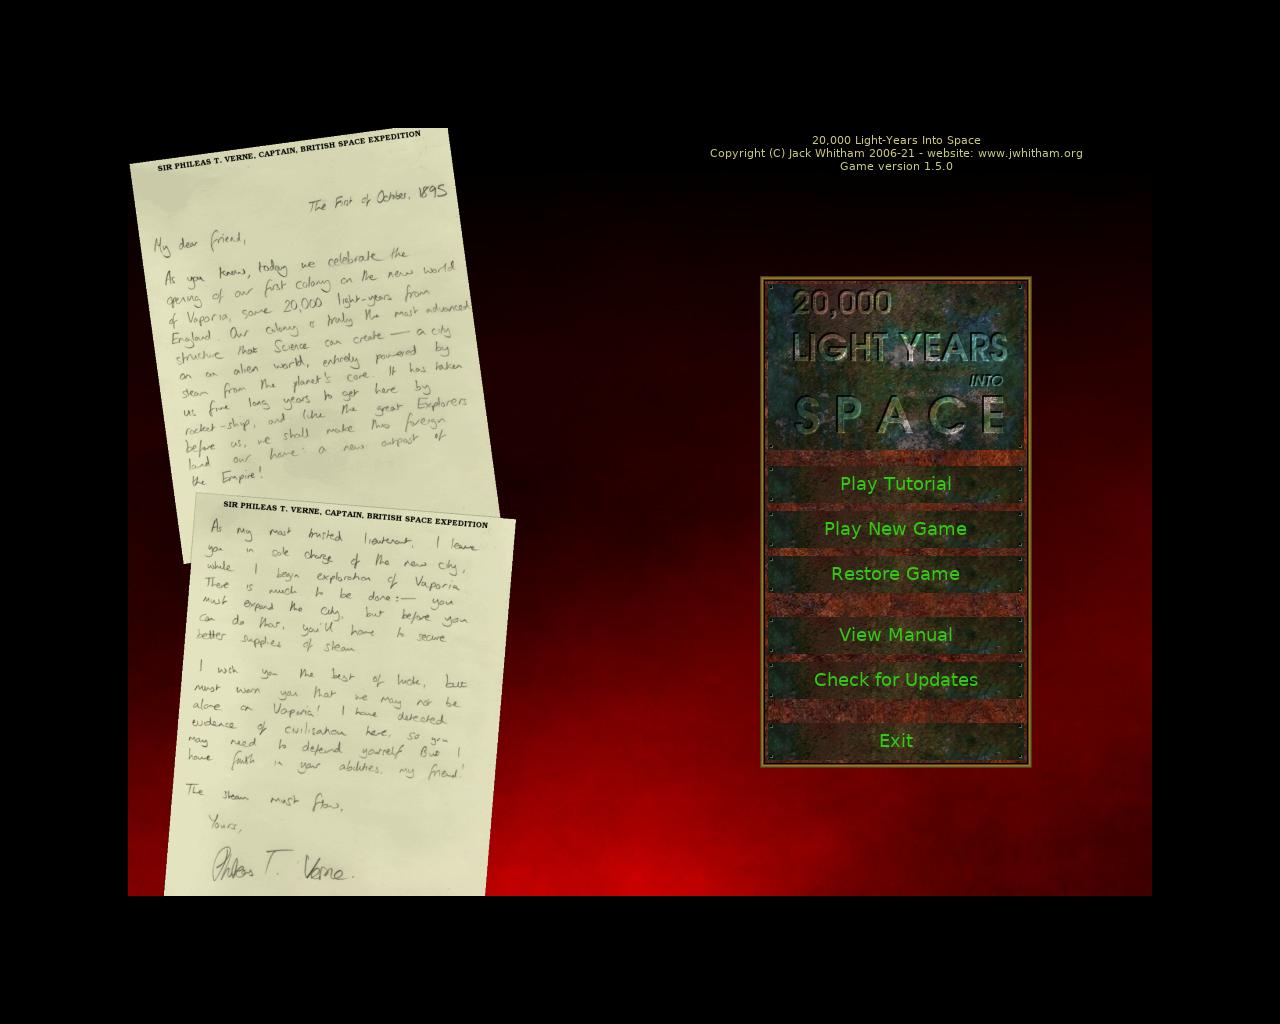 SIR PHILEAS T. VERNE, CAPTAIN, BRITISH SPACE EXPEDITION
The First of October, 1895
My dear friend,
As you know, today we celebrate the
opening of our first colony on the new world
of Vaporia, some 20,000 light-years from
England. Our colony is truly the most advanced
structure that Science can create — a city
on an alien world, entirely powered by
steam from the planet's core. It has taken
us five long years to get here by
rocket-ship, and like the great Explorers
before us, we shall make this foreign
land our home: a new outpost of
the Empire!
SIR PHILEAS T. VERNE, CAPTAIN, BRITISH SPACE EXPEDITION
As my most trusted lieutenant, I leave
you in sole charge of the new city,
while I begin exploration of Vaporia.
There is much to be done:— you
must expand the city, but before you
can do that, you'll have to secure
better supplies of steam.
I wish you the best of luck, but
must warn you that we may not be
alone on Vaporia! I have detected
evidence of civilisation here, so you
may need to defend yourself. But I
have faith in your abilities, my friend!
The steam must flow.
Yours,
Phileas T. Verne.
20,000 Light-Years Into Space
Copyright (C) Jack Whitham 2006-21 - website: www.jwhitham.org
Game version 1.5.0
20,000
LIGHT YEARS
INTO
SPACE
Play Tutorial
Play New Game
Restore Game
View Manual
Check for Updates
Exit